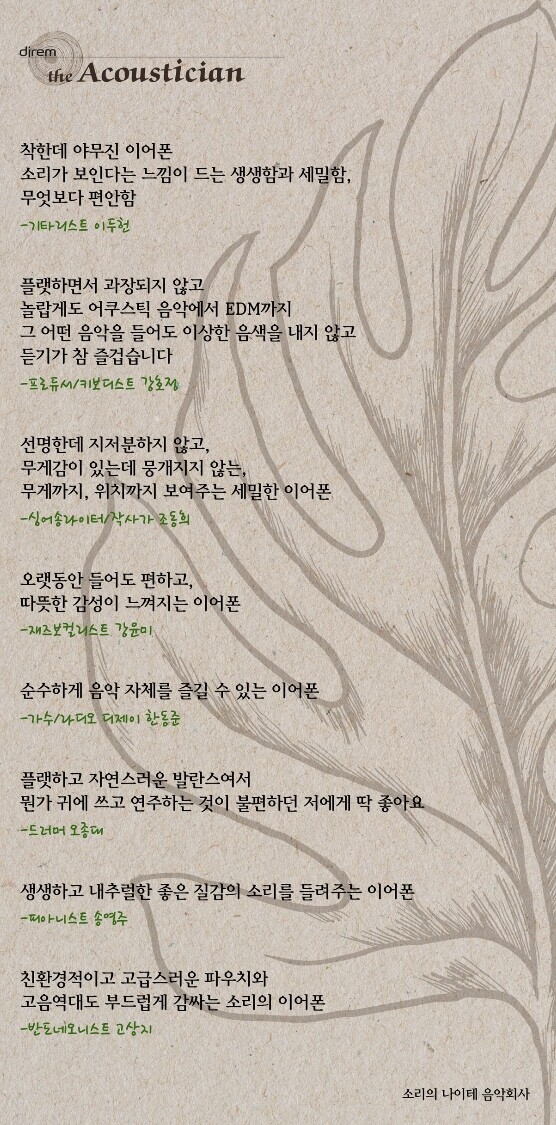 direm
the Acoustician
착한데 야무진 이어폰
소리가 보인다는 느낌이 드는 생생함과 세밀함,
무엇보다 편안함
-기타리스트 이두헌
플랫하면서 과장되지 않고
놀랍게도 어쿠스틱 음악에서 EDM까지
그 어떤 음악을 들어도 이상한 음색을 내지 않고
듣기가 참 즐겁습니다
-프로듀서/키보디스트 강호정
선명한데 지저분하지 않고,
무게감이 있는데 뭉개지지 않는,
무게까지, 위치까지 보여주는 세밀한 이어폰
-싱어송라이터/작사가 조동희
오랫동안 들어도 편하고,
따뜻한 감성이 느껴지는 이어폰
-재즈보컬리스트 강윤미
순수하게 음악 자체를 즐길 수 있는 이어폰
-가수/라디오 디제이 한동준
플랫하고 자연스러운 발란스여서
뭔가 귀에 쓰고 연주하는 것이 불편하던 저에게 딱 좋아요
-드러머 오종대
생생하고 내추럴한 좋은 질감의 소리를 들려주는 이어폰
-피아니스트 송영주
친환경적이고 고급스러운 파우치와
고음역대도 부드럽게 감싸는 소리의 이어폰
-반도네오니스트 고상지
소리의 나이테 음악회사